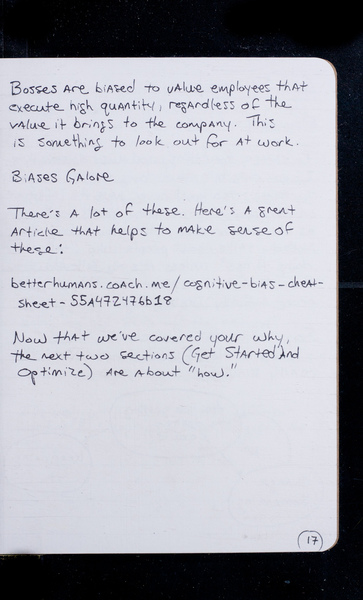 Bosses are biased to value employees that
execute high quantity, regardless of the
value it brings to the company. This
is something to look out for at work.
Biases Galore
There's a lot of these. Here's a great
article that helps to make sense of
these:
betterhumans.coach.me/cognitive-bias-cheat-
sheet-55a472476b18
Now that we've covered your why,
the next two sections (Get Started and
Optimize) are about "how."
17